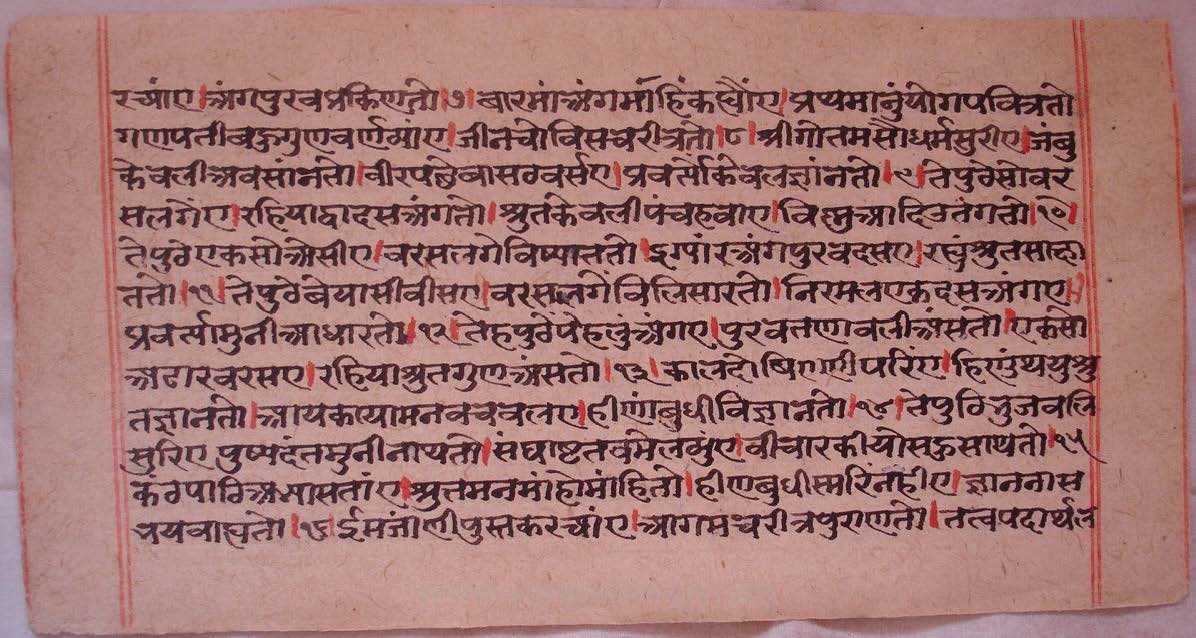 रच्यांए।अंगपुरवप्रकिर्णतो।७।बारमांअंगमांहिंकह्यौंए।प्रथमानुंयोगपवित्रतो
गणपतीबहुगुणवर्णव्याए।जीनचोविसचरीत्रतो।८।श्रीगोतमसौधर्मसुरीए।जंबु
केवलीअवसांनतो।वीरपछेबासठवर्सए।प्रवर्त्सोकेवलज्ञांनतो।९।तेपुठेसोवर
सलगेंए।रहियाद्वादसअंगतो।श्रुतकेवलीपंचहवाए।विष्णुआदिउतंगतो।१०।
तेपुठेएकसोत्र्यासीए।वरसलगेविष्याततो।इग्यांरअंगपुरवदसए।
तंतो।११।तेपुठेबेंयासीवीसए।वरसलगेंविलिसारतो।निरमलएकादसअंगए।
प्रवर्त्यामुनीआधारतो।१२।तेहपुठेपेहलुंअंगए।पुरवतणावलीअंसतो।एकसो
अढारवरसए।रहियाश्रुतगुणअंसतो।१३।कालदोषिप्राणीपरिंए।हिणुंथयुश्रु
तज्ञानतो।आयकायामनवचबलए।हीणांबुधीविज्ञानतो।१४।तेपुठिभुजबलि
सुरिए पुष्पदंतमुनीनाथतो।संघाष्टतवमेलव्युंए।वीचारकीयोसहुसाथतो।१५
कंठपाठिअभ्यासतांए।श्रुतमनमांहोमांहितो।हीणबुधीस्मरिंनहीए।ज्ञाननास
थयवाह्यतो।१६।ईमजांणीपुस्तकरच्यांए।आगमचरीत्रपुराणतो।तत्वपदार्थल